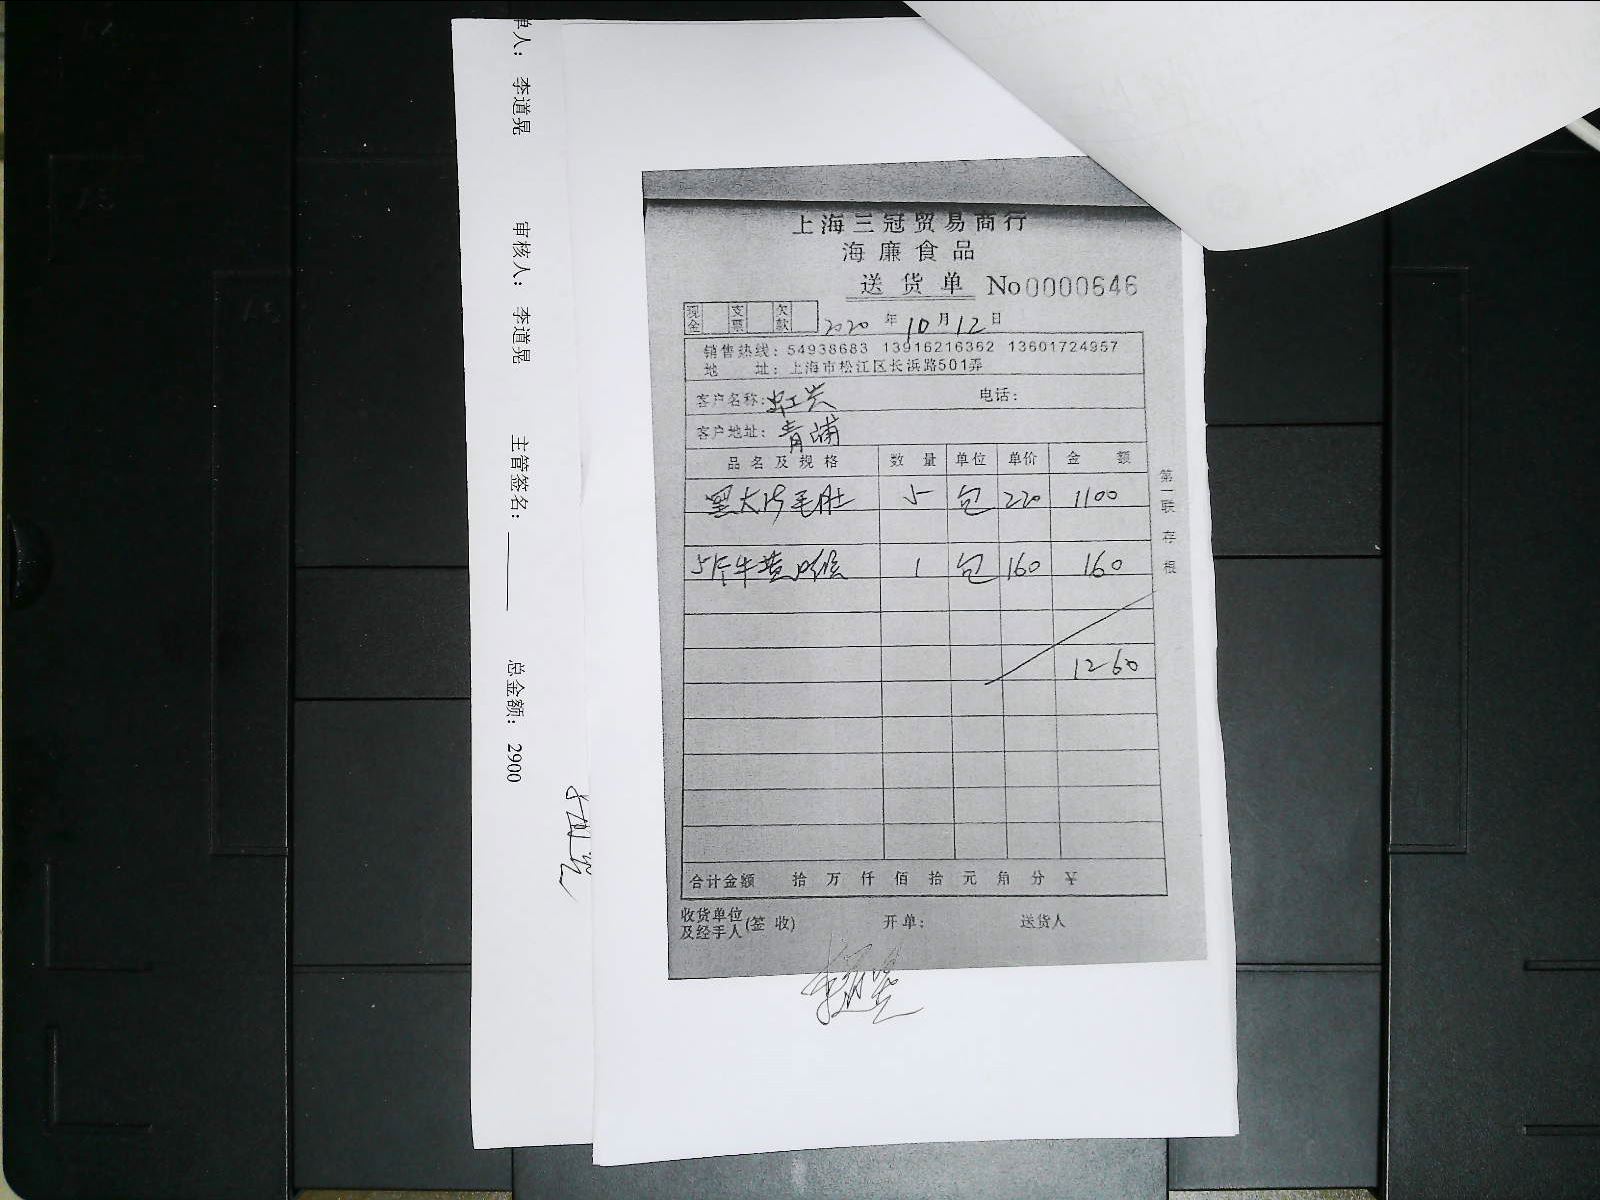 单人： 李道晃 审核人： 李道晃 主管签名： 总金额： 2900
上海三冠贸易商行
海廉食品
送货单 No0000646
现金 支票 欠款 2020 年 10 月 12 日
销售热线：54938683 13916216362 13601724957
地 址：上海市松江区长浜路501弄
客户名称：虹兴 电话：
客户地址：青浦
品名及规格 数量 单位 单价 金额
黑大片毛肚 5 包 220 1100
5斤牛黄喉 1 包 160 160
1260
合计金额 拾 万 仟 佰 拾 元 角 分 ¥
收货单位及经手人(签收) 开单： 送货人
第一联存根